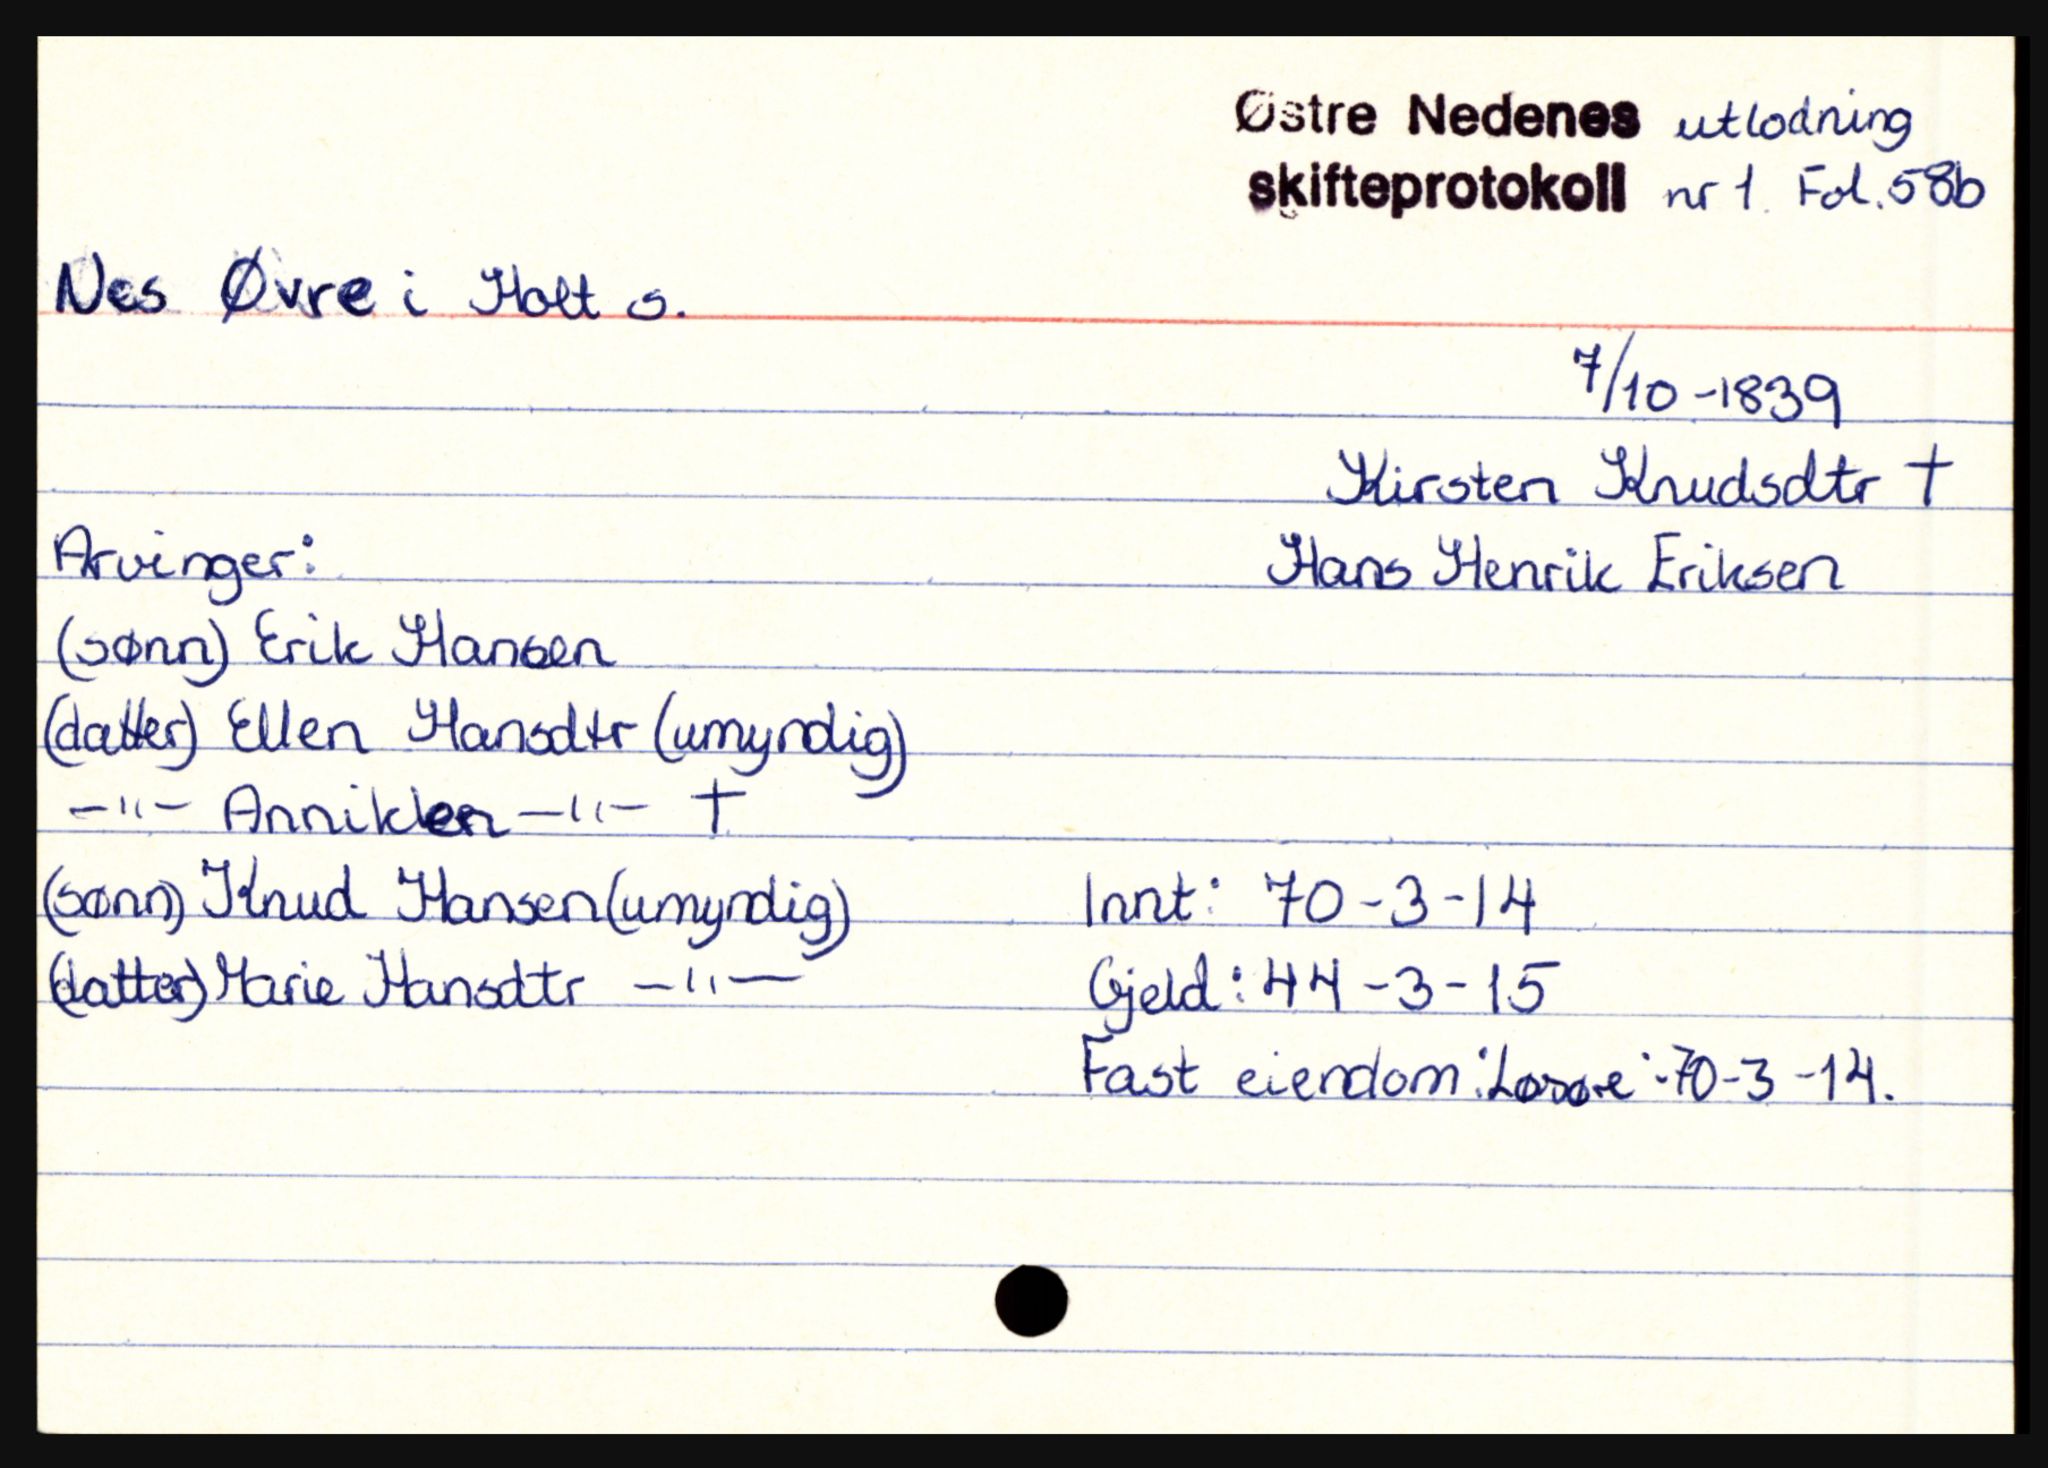 Østre Nedenes utlodning
skifteprotokoll nr 1. Fol. 58b
Nes Øvre i Holt s.
7/10-1839
Kirsten Knudsdtr †
Arvinger:
Hans Henrik Eriksen
(sønn) Erik Hansen
(datter) Ellen Hansdtr (umyndig)
-"- Anniklen -"- †
(sønn) Knud Hansen (umyndig)
Innt: 70-3-14
(datter) Marie Hansdtr -"-
Gjeld: 44-3-15
Fast eiendom: Løsøre: 70-3-14.